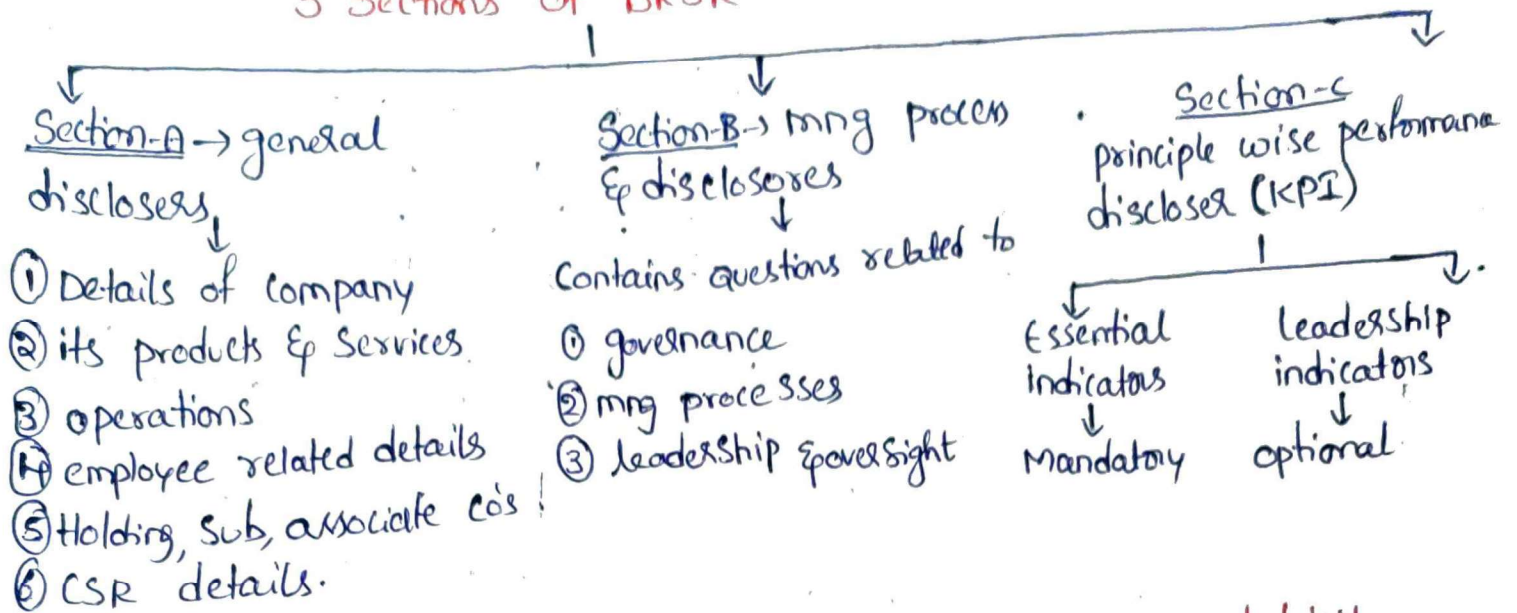 3 Sections of BRSR
Section-A → general
disclosers
① Details of company
② its products & Services
③ operations
④ employee related details
⑤ Holding, Sub, associate co's
⑥ CSR details.
Section-B → mng process
& disclosores
Contains questions related to
① governance
② mng processes
③ leadership & oversight
Section-C
principle wise performance
discloser (KPI)
Essential
indicators
Mandatory
leadership
indicators
optional